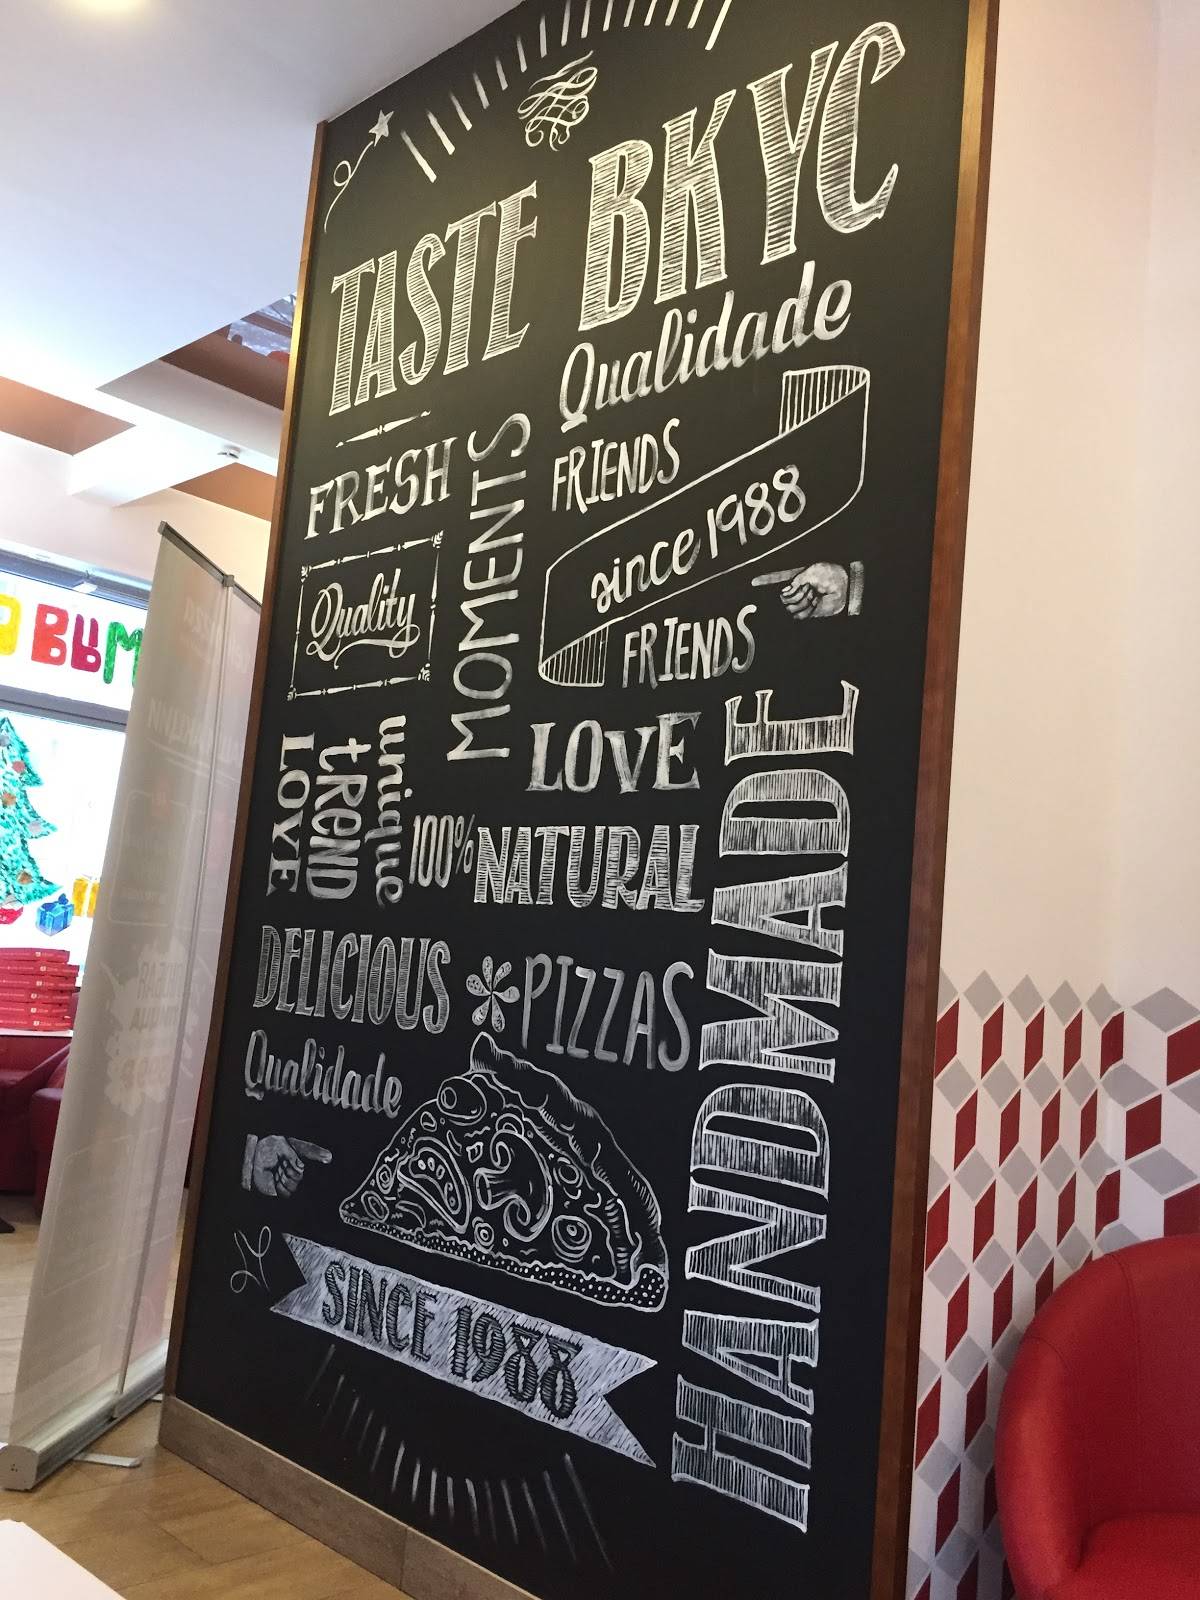 TASTE ВКУС
Qualidade
FRESH
MOMENTS
FRIENDS
since 1988
Quality
FRIENDS
LOVE
trend
unique
LOVE
100% NATURAL
HANDMADE
DELICIOUS
PIZZAS
Qualidade
SINCE 1988